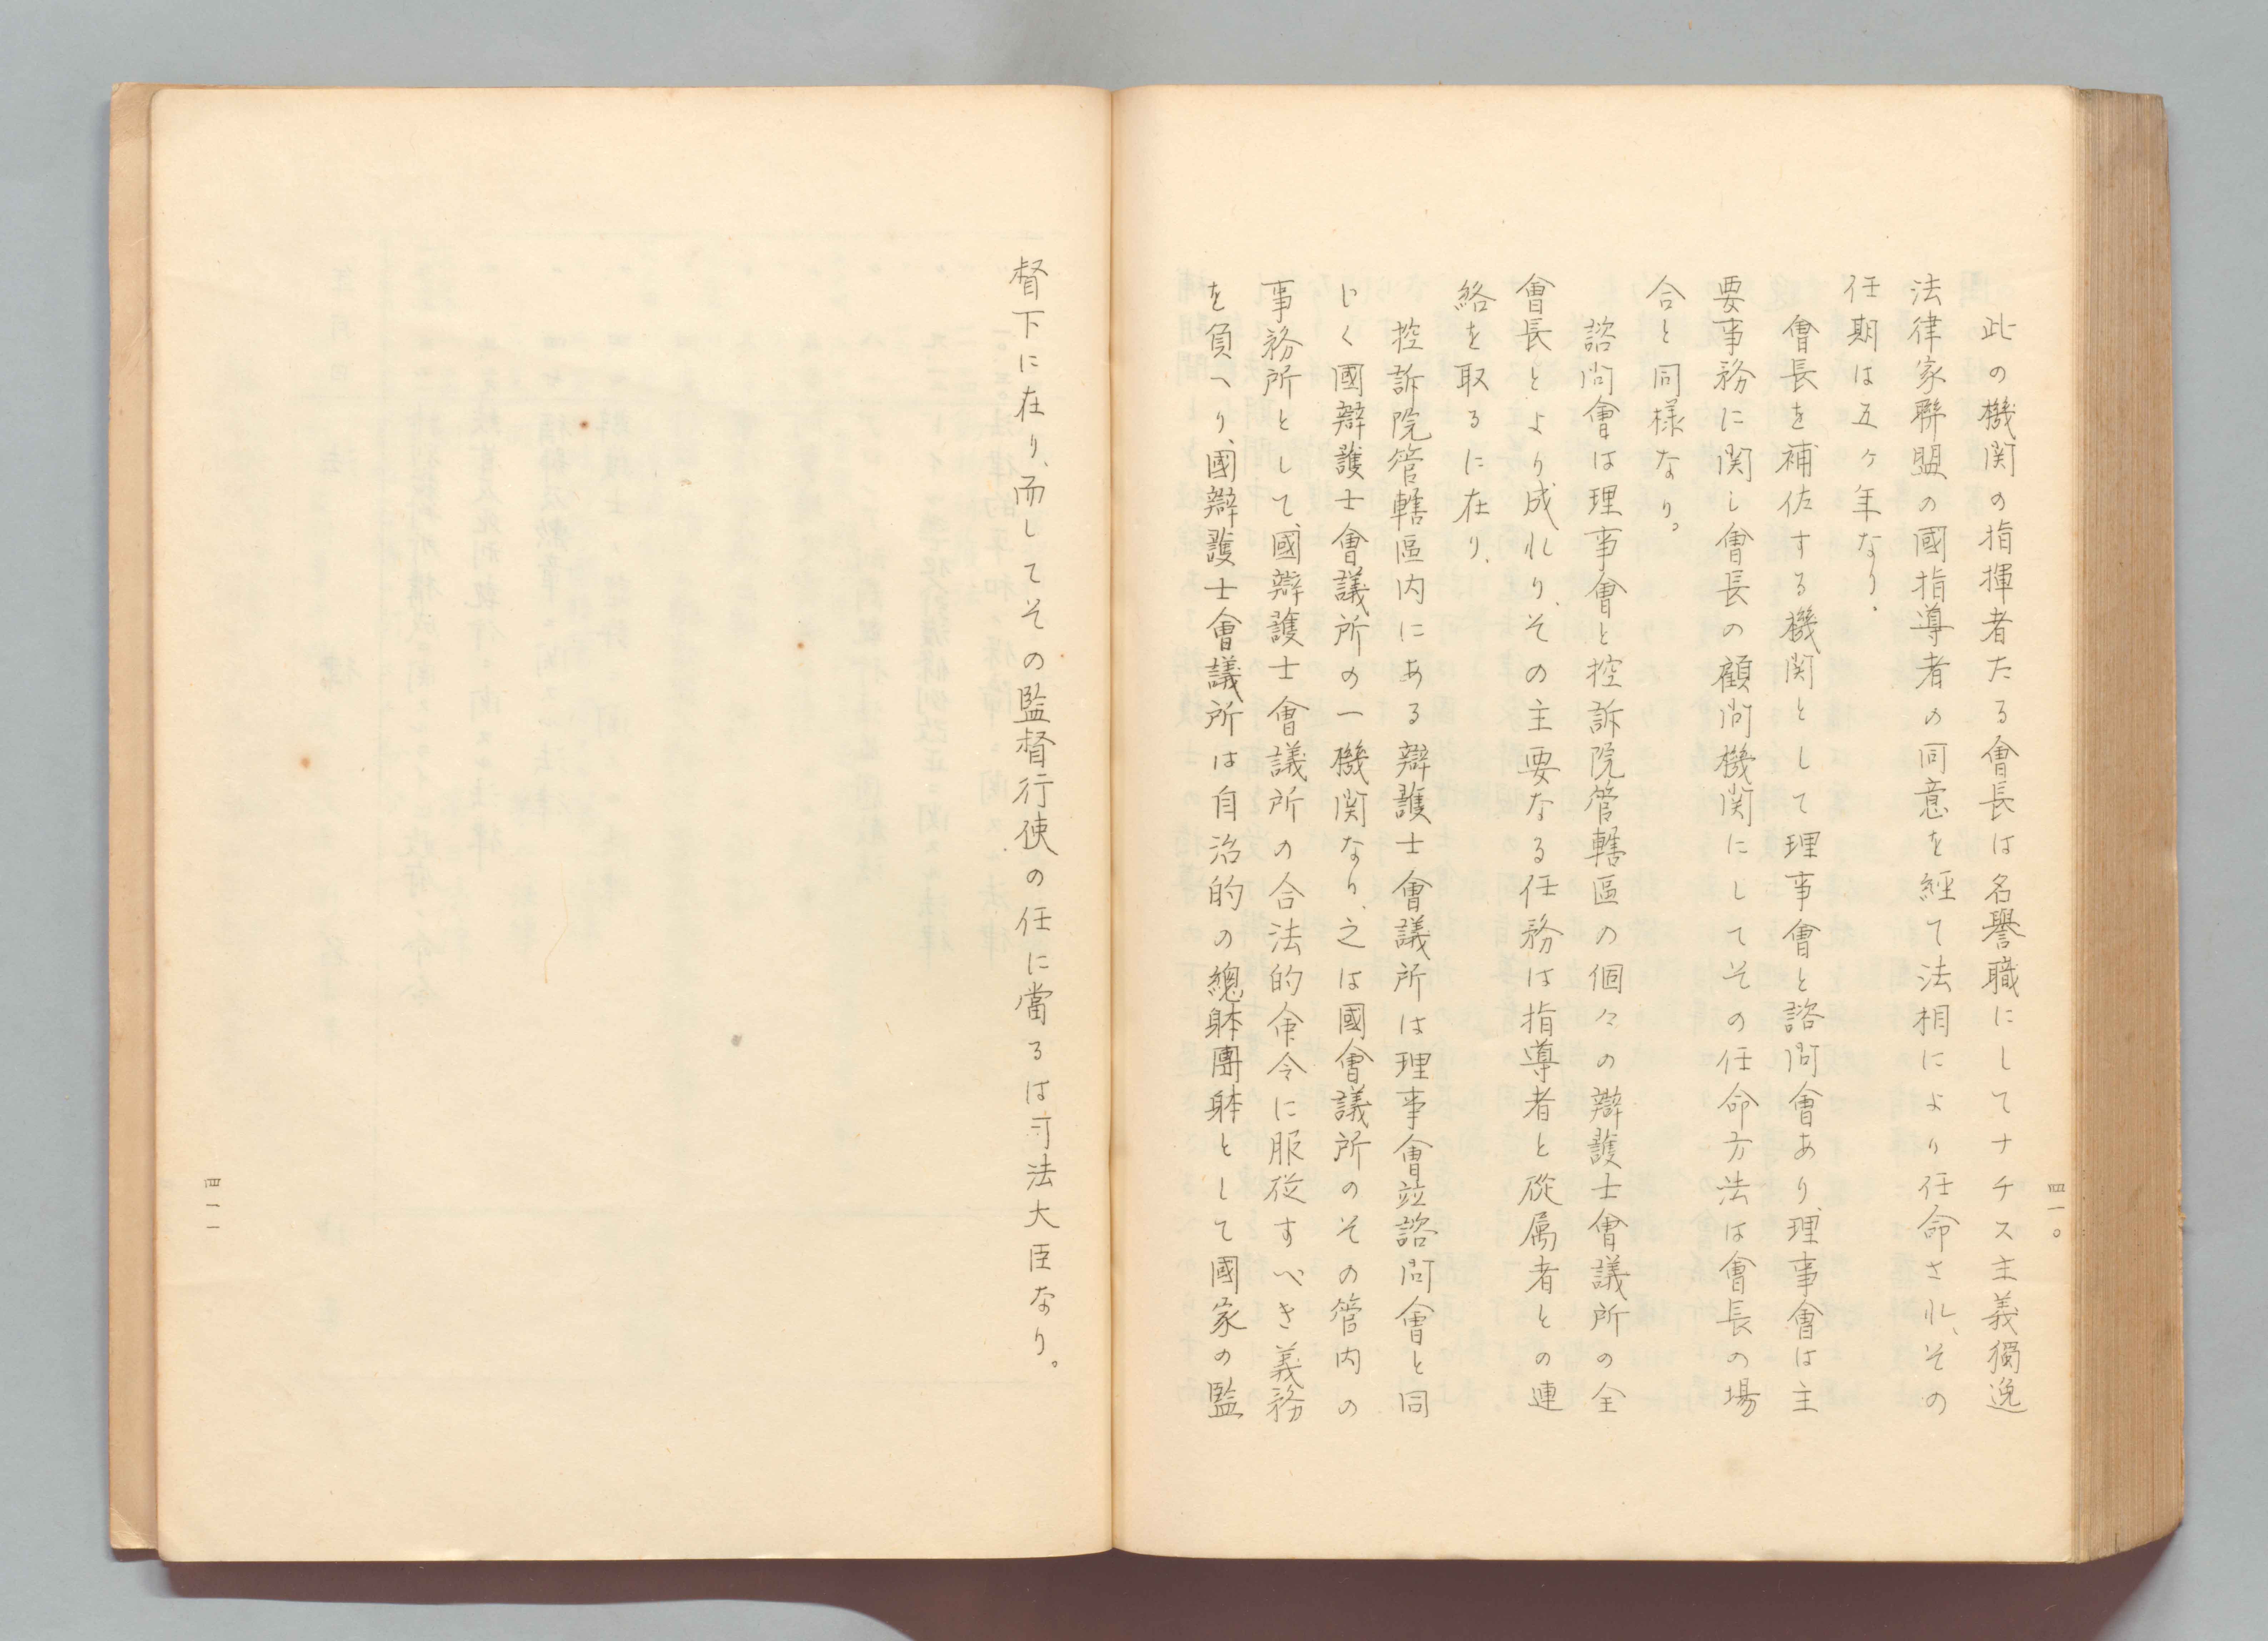 此の機関の指揮者たる會長は名譽職にしてナチス主義獨逸
法律家聯盟の國指導者の同意を経て法相により任命され、その
任期は五ヶ年なり。
會長を補佐する機関として理事會と諮問會あり、理事會は主
要事務に関し會長の顧問機関にしてその任命方法は會長の場
合と同様なり。
諮問會は理事會と控訴院管轄區の個々の辯護士會議所の全
會長とより成れり、その主要なる任務は指導者と從属者との連
絡を取るに在り、
控訴院管轄區内にある辯護士會議所は理事會竝諮問會と同
じく國辯護士會議所の一機関なり、之は國會議所のその管内の
事務所として、國辯護士會議所の合法的命令に服従すべき義務
を負へり、國辯護士會議所は自治的の總躰團躰として國家の監
四一〇
督下に在り、而してその監督行使の任に當るは司法大臣なり。
四一一